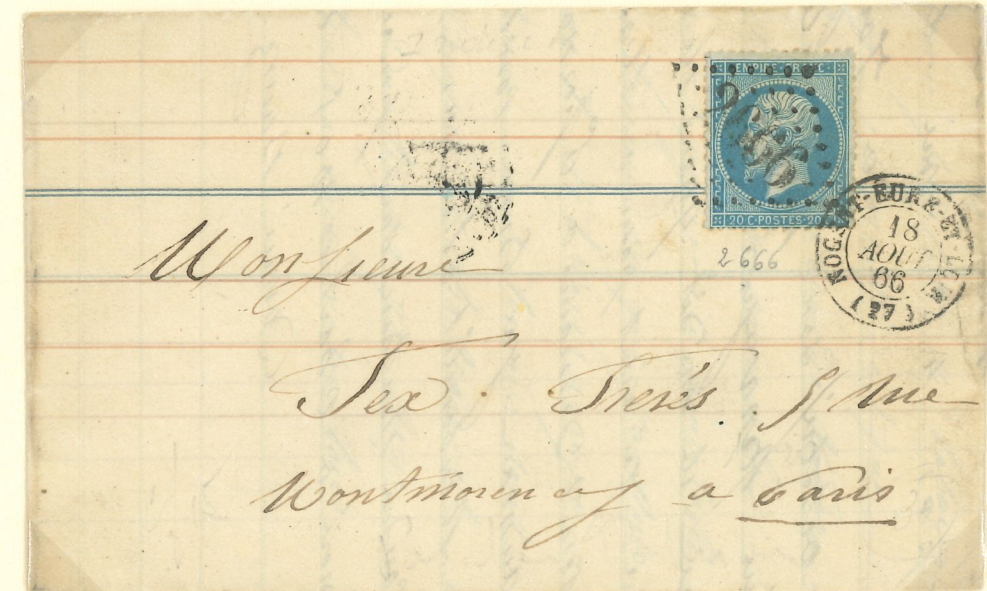 EMPIRE FRANC
2666
20 C·POSTES·20
NOGENT-EURE-ET-LOIR
18
AOUT
66
(27)
2666
Monsieur
Tex Frerés 5 Rue
Montmorency a Paris